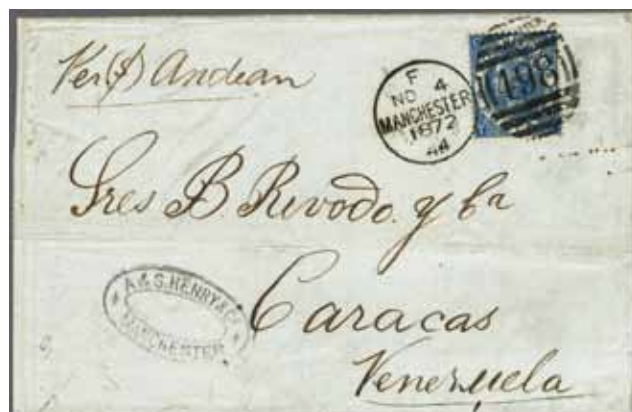 Per (S) Andean
F
NO 4
MANCHESTER
1872
44
498
Sres B. Revodo. y Ca
A & S. HENRY & Co
MANCHESTER
Caracas
Venezuela